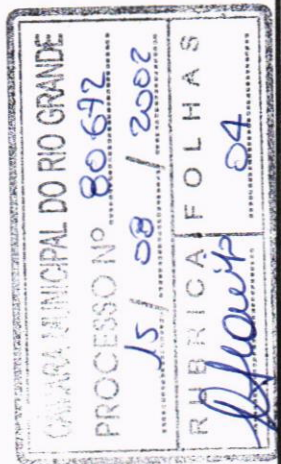 CAMARA MUNICIPAL DO RIO GRANDE
PROCESSO Nº 80672
15 / 08 / 2002
RUBRICA FOLHAS
04